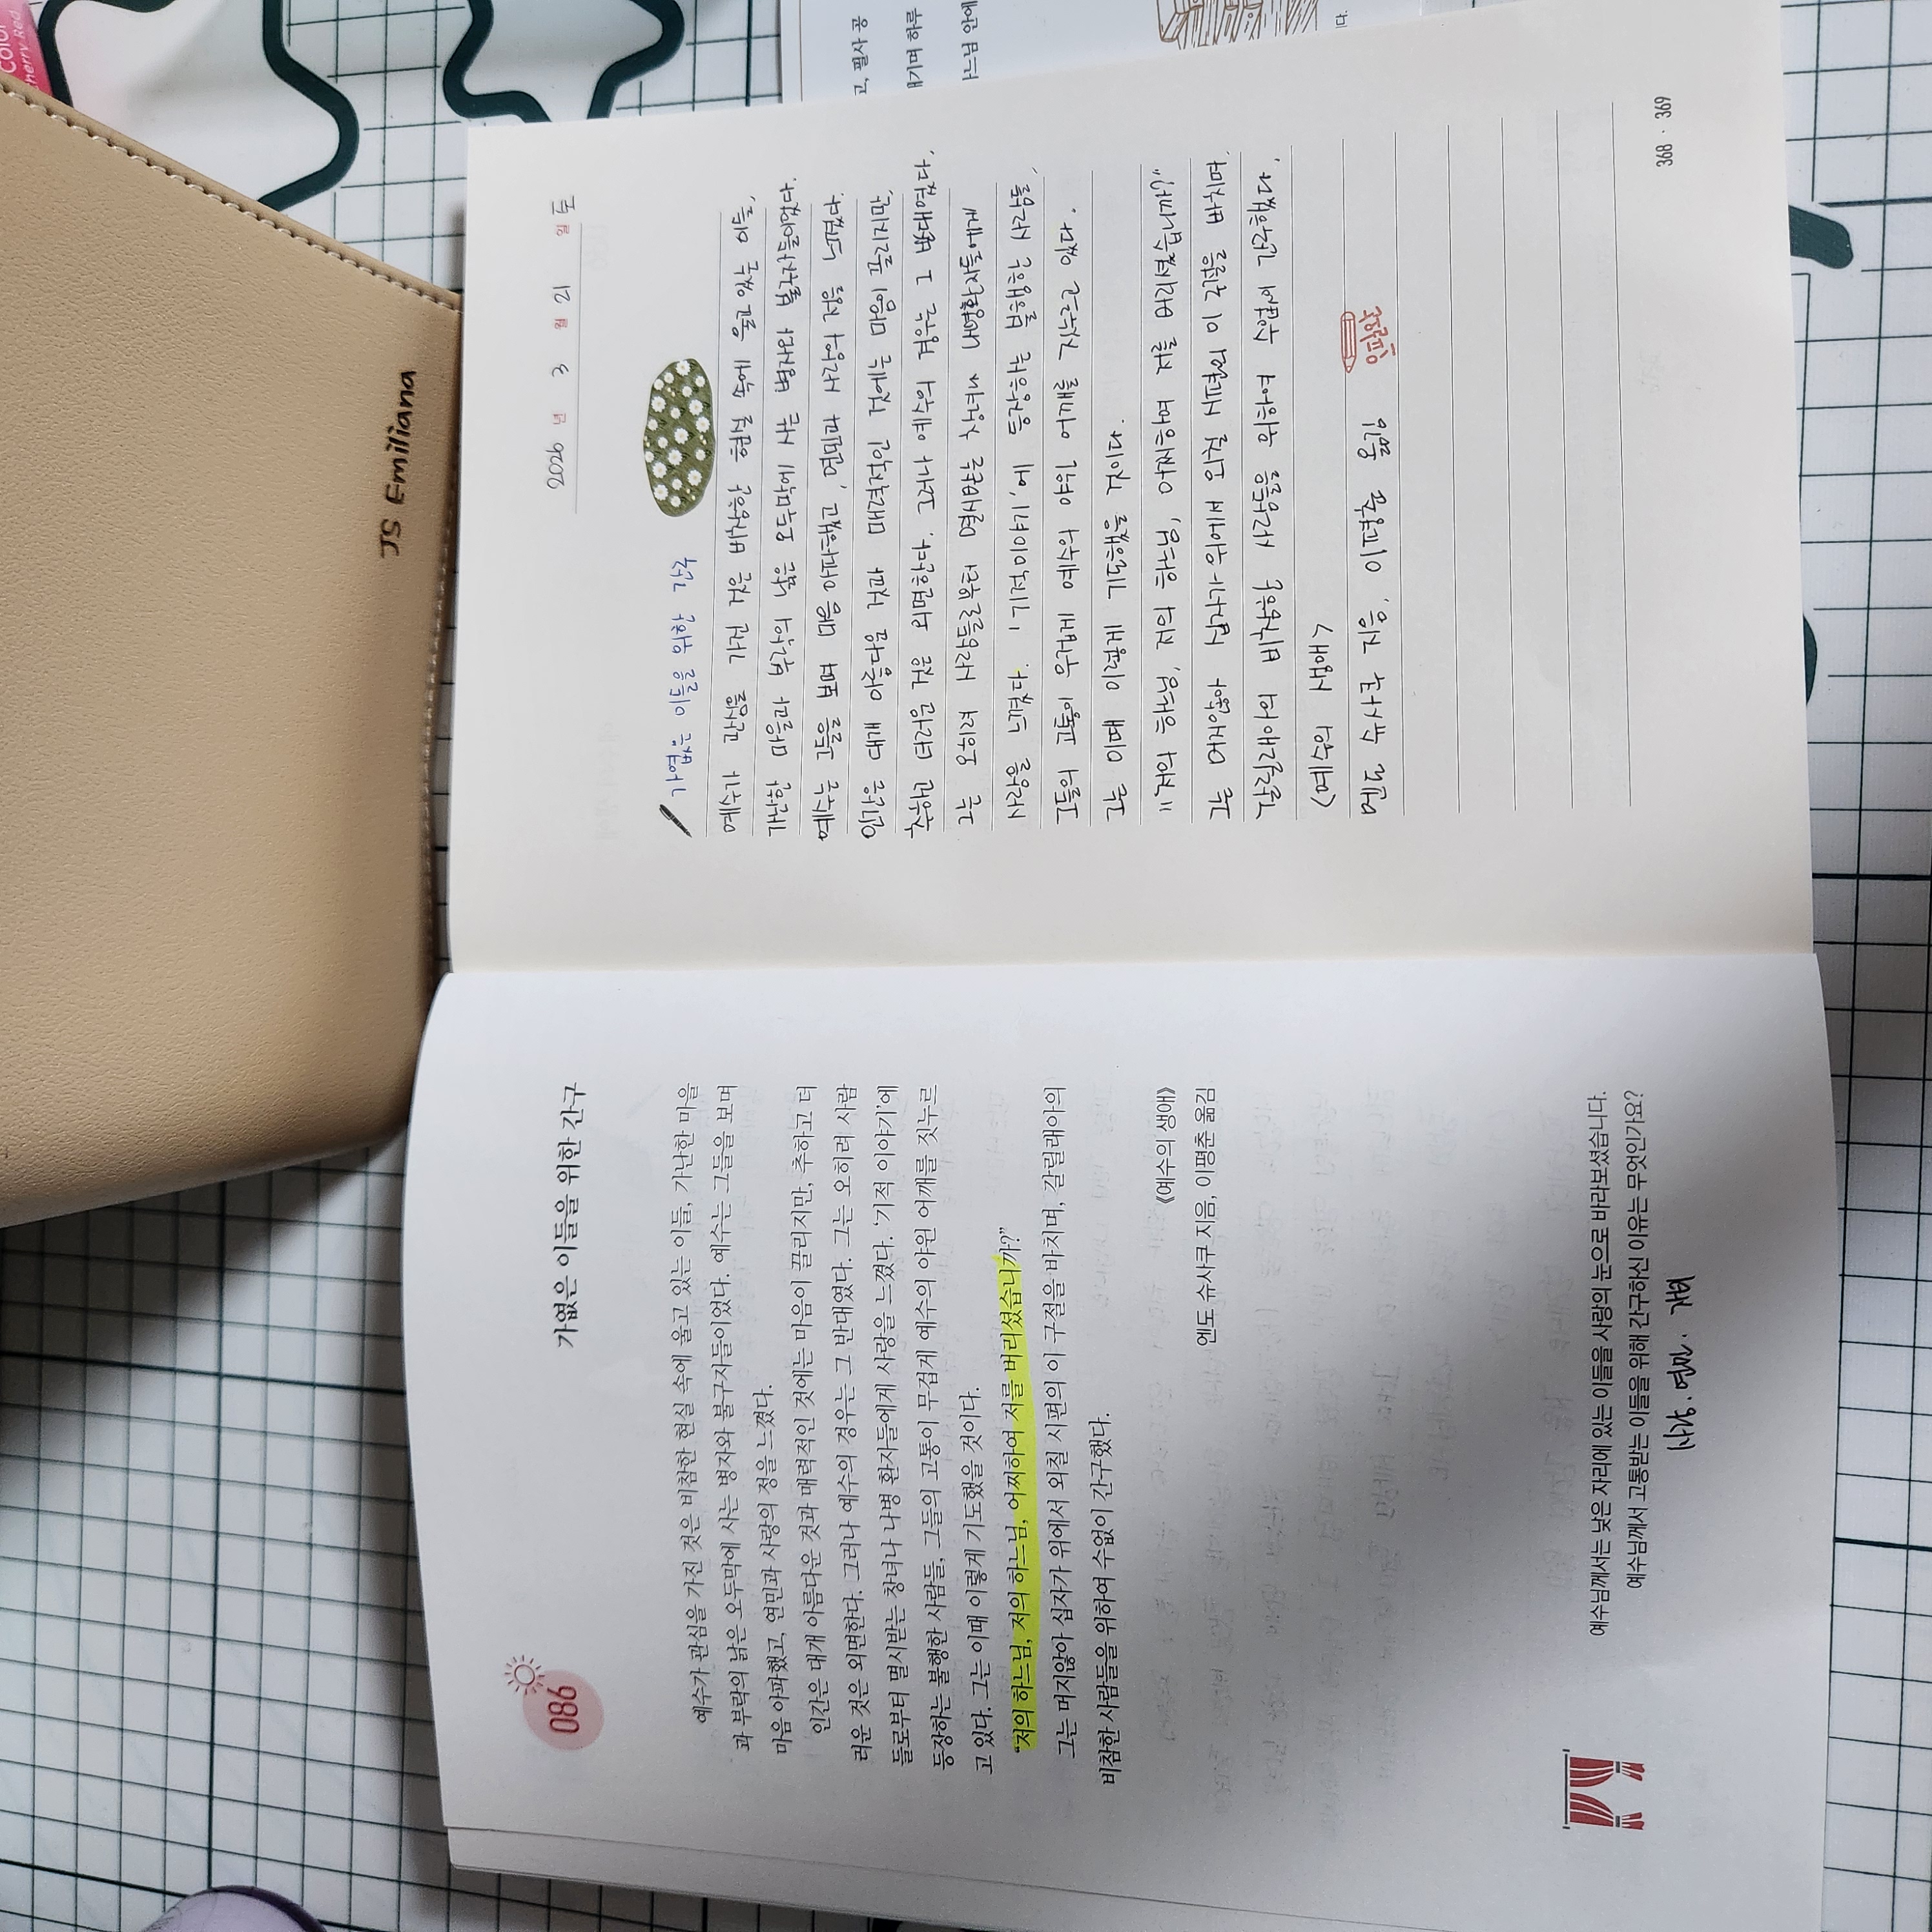 086
가엾은 이들을 위한 간구
예수가 관심을 가진 것은 비참한 현실 속에 울고 있는 이들, 가난한 마을
과 부락의 낡은 오두막에 사는 병자와 불구자들이었다. 예수는 그들을 보며
마음 아파했고, 연민과 사랑의 정을 느꼈다.
인간은 대개 아름다운 것과 매력적인 것에는 마음이 끌리지만, 추하고 더
러운 것은 외면한다. 그러나 예수의 경우는 그 반대였다. 그는 오히려 사람
들로부터 멸시받는 창녀나 나병 환자들에게 사랑을 느꼈다. ‘기적 이야기’에
등장하는 불행한 사람들, 그들의 고통이 무겁게 예수의 야윈 어깨를 짓누르
고 있다. 그는 이때 이렇게 기도했을 것이다.
“저의 하느님, 저의 하느님, 어찌하여 저를 버리셨습니까?”
그는 머지않아 십자가 위에서 외칠 시편의 이 구절을 바치며, 갈릴래아의
비참한 사람들을 위하여 수없이 간구했다.
《예수의 생애》
엔도 슈사쿠 지음, 이평춘 옮김
예수님께서는 낮은 자리에 있는 이들을 사랑의 눈으로 바라보셨습니다.
예수님께서 고통받는 이들을 위해 간구하신 이유는 무엇인가요?
사랑. 연민. 자비
2026 년 3 월 21 일 토
가엾은 이들을 위한 간구
예수가 관심을 가진 것은 비참한 현실 속에 울고 있는 이들,
가난한 마을과 부락의 낡은 오두막에 사는 병자와 불구자들이었다.
예수는 그들을 보며 마음아파했고, 연민과 사랑의 정을 느꼈다.
인간은 대개 아름다운 것과 매력적인 것에는 마음이 끌리지만,
추하고 더러운 것은 외면한다. 그러나 예수의 경우는 그 반대였다.
그는 오히려 사람들로부터 멸시받는 창녀나 나병환자들에게
사랑을 느꼈다. '기적이야기'에 등장하는 불행한 사람들,
그들의 고통이 무겁게 예수의 야윈 어깨를 짓누르고 있다.
그는 이때 이렇게 기도했을 것이다.
"저의 하느님, 저의 하느님, 어찌하여 저를 버리셨습니까?"
그는 머지않아 십자가위에서 외칠 시편의 이 구절을 바치며,
갈릴래아의 비참한 사람들을 위하여 수없이 간구했다.
<예수의 생애>
엔도 슈사쿠 지음, 이평춘 옮김
368 · 369
JS Emiliana
고, 필사 공
새기며 하루
하느님 안에
다.